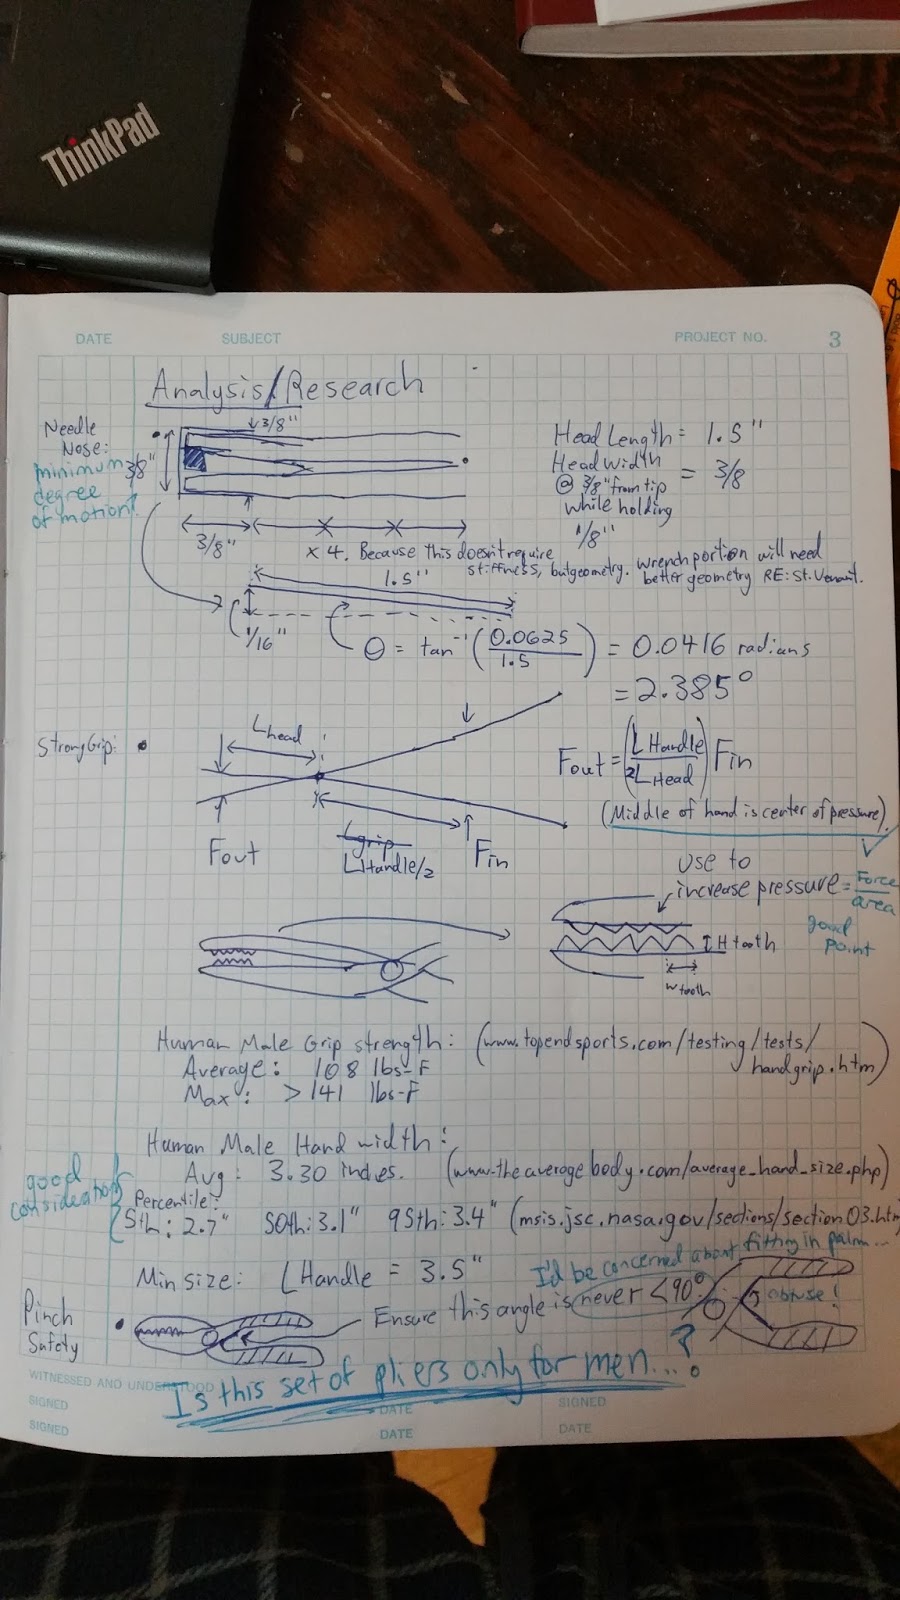 ThinkPad
DATE
SUBJECT
PROJECT NO.
3
Analysis/Research
Needle
Nose:
minimum
degree
of motion?
3/8"
3/8"
3/8"
Head Length = 1.5"
Head width
@ 3/8" from tip = 3/8
while holding
1/8"
x 4. Because this doesn't require
stiffness, but geometry. wrench portion will need
better geometry RE: St. Venant.
1.5"
1/16"
Θ = tan⁻¹ (0.0625/1.5) = 0.0416 radians
= 2.385°
Strong Grip:
L head
Fout = (L Handle/2L Head) Fin
(Middle of hand is center of pressure)
Fout
Lgrip
L Handle/2
Fin
use to
increase pressure = Force/area
good
point
H tooth
w tooth
Human Male Grip strength: (www.topendsports.com/testing/tests/
handgrip.htm)
Average: 108 lbs-F
Max: >141 lbs-F
Human Male Hand width:
Avg: 3.30 inches. (www.theaveragebody.com/average_hand_size.php)
good
Percentile:
5th: 2.7" 50th: 3.1" 95th: 3.4" (msis.jsc.nasa.gov/sections/section03.htm
Min size: L Handle = 3.5"
I'd be concerned about fitting in palm...
Pinch
Safety
Ensure this angle is never < 90°
obtuse!
Is this set of pliers only for men...?
WITNESSED AND UNDERSTOOD
SIGNED
DATE
SIGNED
SIGNED
DATE
DATE